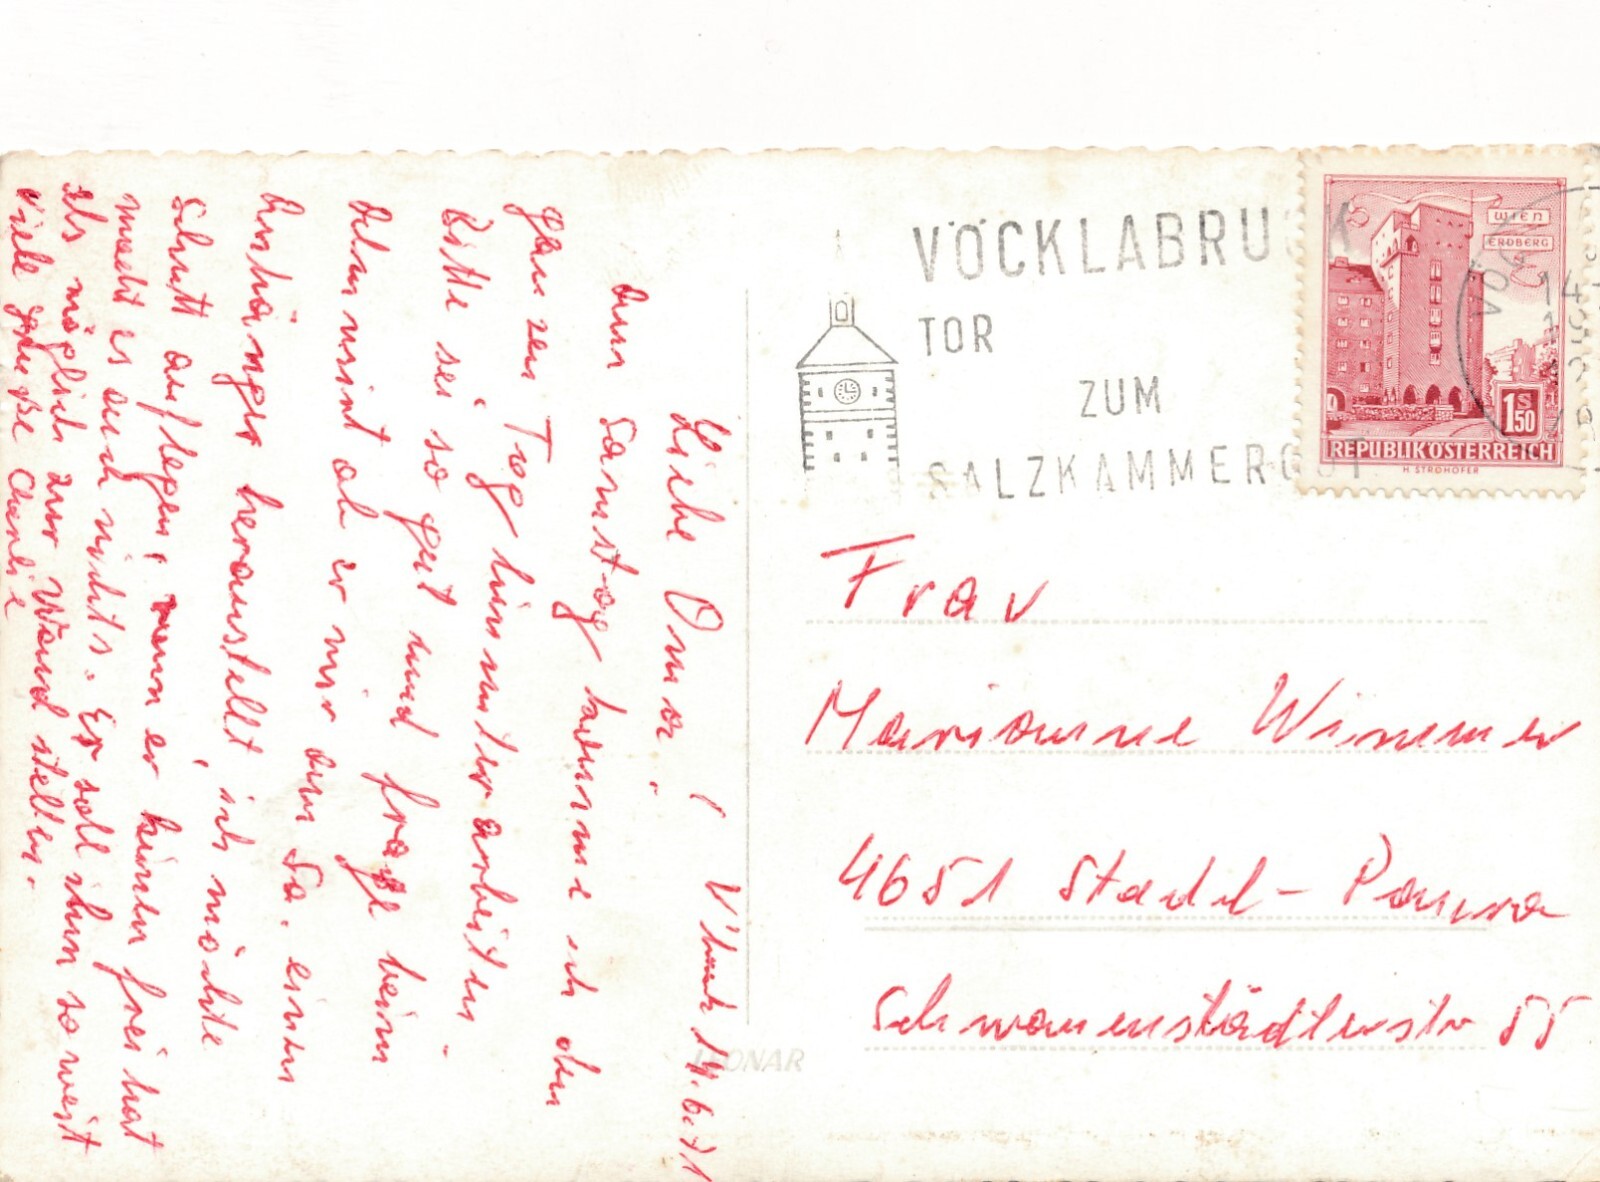 Vbruck 14.6.71
Liebe Oma!
Am Samstag komme ich den
ganzen Tag hinunter arbeiten.
Bitte sei so gut und frage beim
ob er mir am Sa. einen
Anhänger herausstellt, ich möchte
Schutt auflegen, wenn er keinen frei hat
macht es auch nichts. Er soll ihn so weit
als möglich zur Wand stellen.
Viele Grüße
VÖCKLABRUCK
TOR
ZUM
SALZKAMMERGUT
WIEN
ERDBERG
1 S 50
REPUBLIK ÖSTERREICH
H. STROHOFER
Frau
Marianne Wimmer
4651 Stadl-Paura
Schwanenstädterstr 55
LEONAR